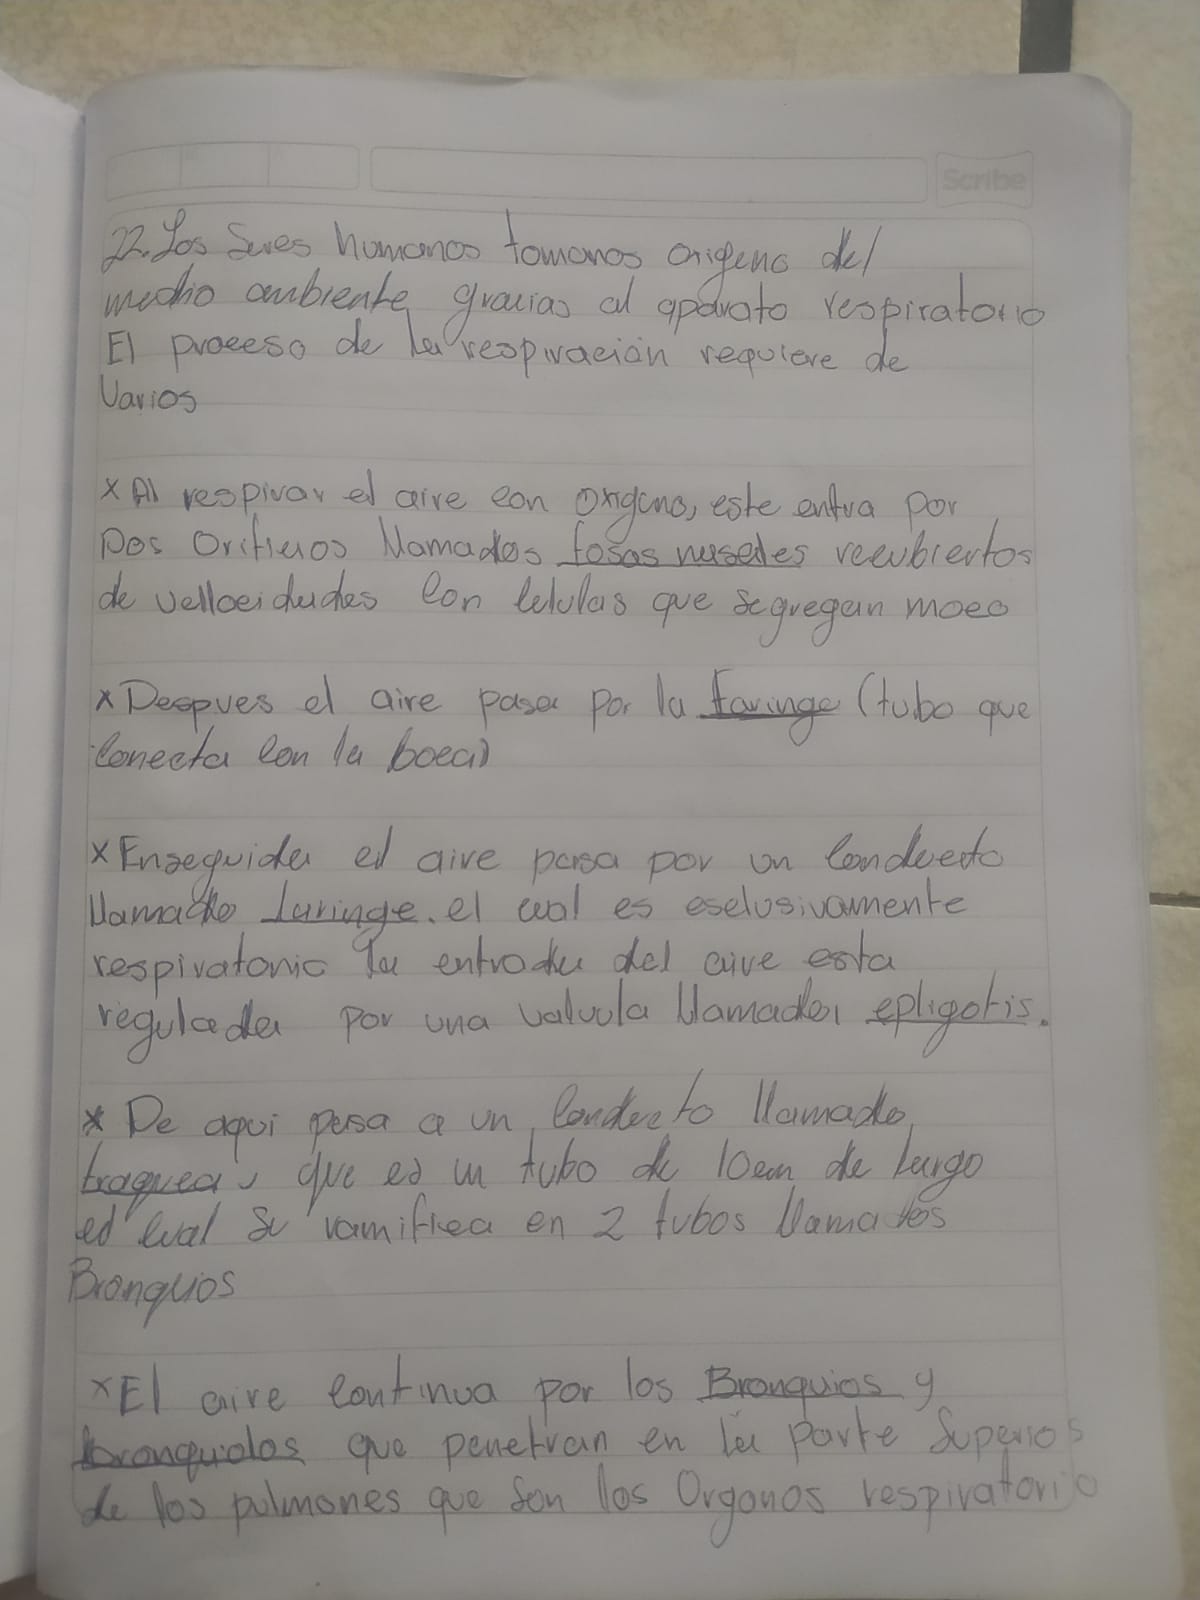 Scribe
22. Los Seres humanos tomanos origeno del
medio ambiente gracias al aparato respiratorio
El proceso de la respiración requiere de
Varios
x Al respirar el aire con oxigeno, este entra por
Dos Orificios llamados fosas nasales recubiertos
de vellocidades Con celulas que segregan moco
x Despues el aire pasa por la Faringe (tubo que
Conecta Con la boca)
x Enseguida el aire pasa por un Conducto
llamado Laringe. el cual es esclusivamente
respiratorio la entrada del aire esta
regulada por una valvula llamada epligotis.
* De aqui pasa a un Conducto llamado
traquea, que es un tubo de 10cm de largo
el Cual se ramifica en 2 tubos llamados
Bronquios
x El aire Continua por los Bronquios y
bronquiolos que penetran en la parte Superios
de los pulmones que son los Organos respiratorio